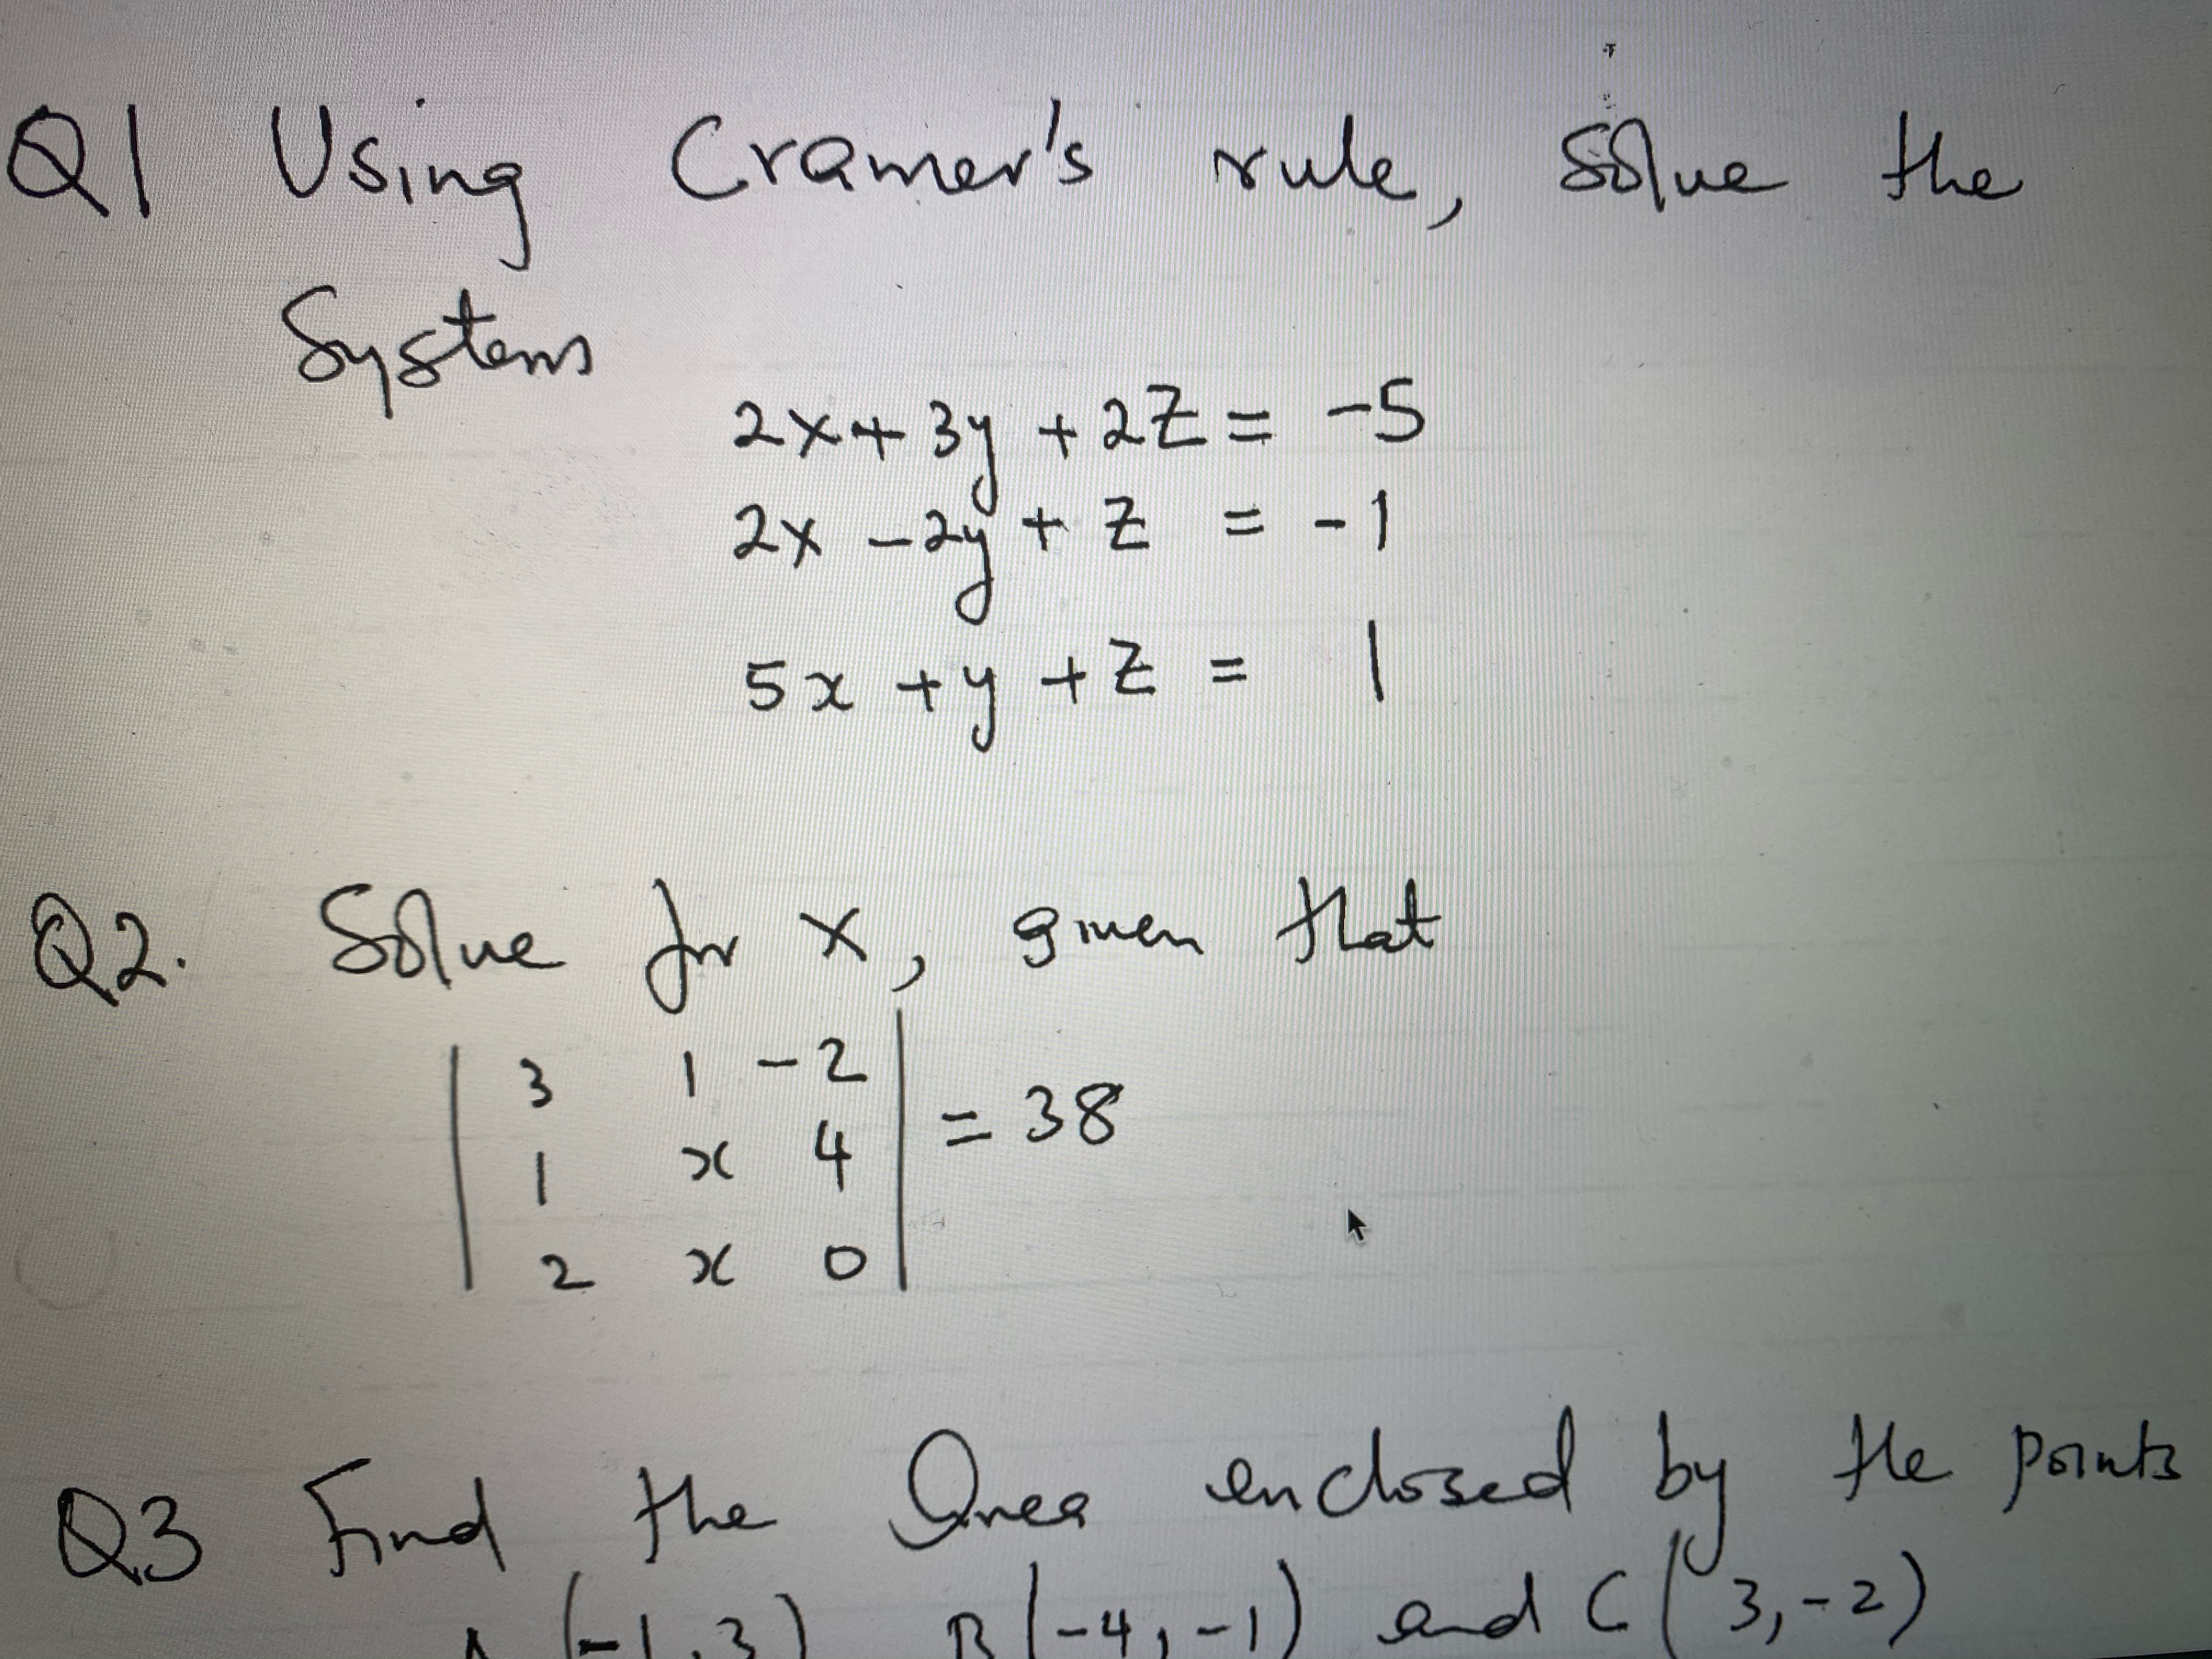 Q1 Using Cramer's rule, Solve the
System
2x + 3y + 2z = -5
2x - 2y + z = -1
5x + y + z = 1
Q2. Solve for x, given that
3 1 -2
1 x 4 = 38
2 x 0
Q3 Find the Area enclosed by the points
A(-1, 3) B(-4, -1) and C(3, -2)